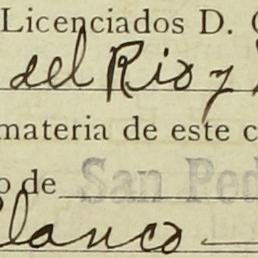 Licenciados D.
del Rio y
materia de este c
o de San Ped
Blanco